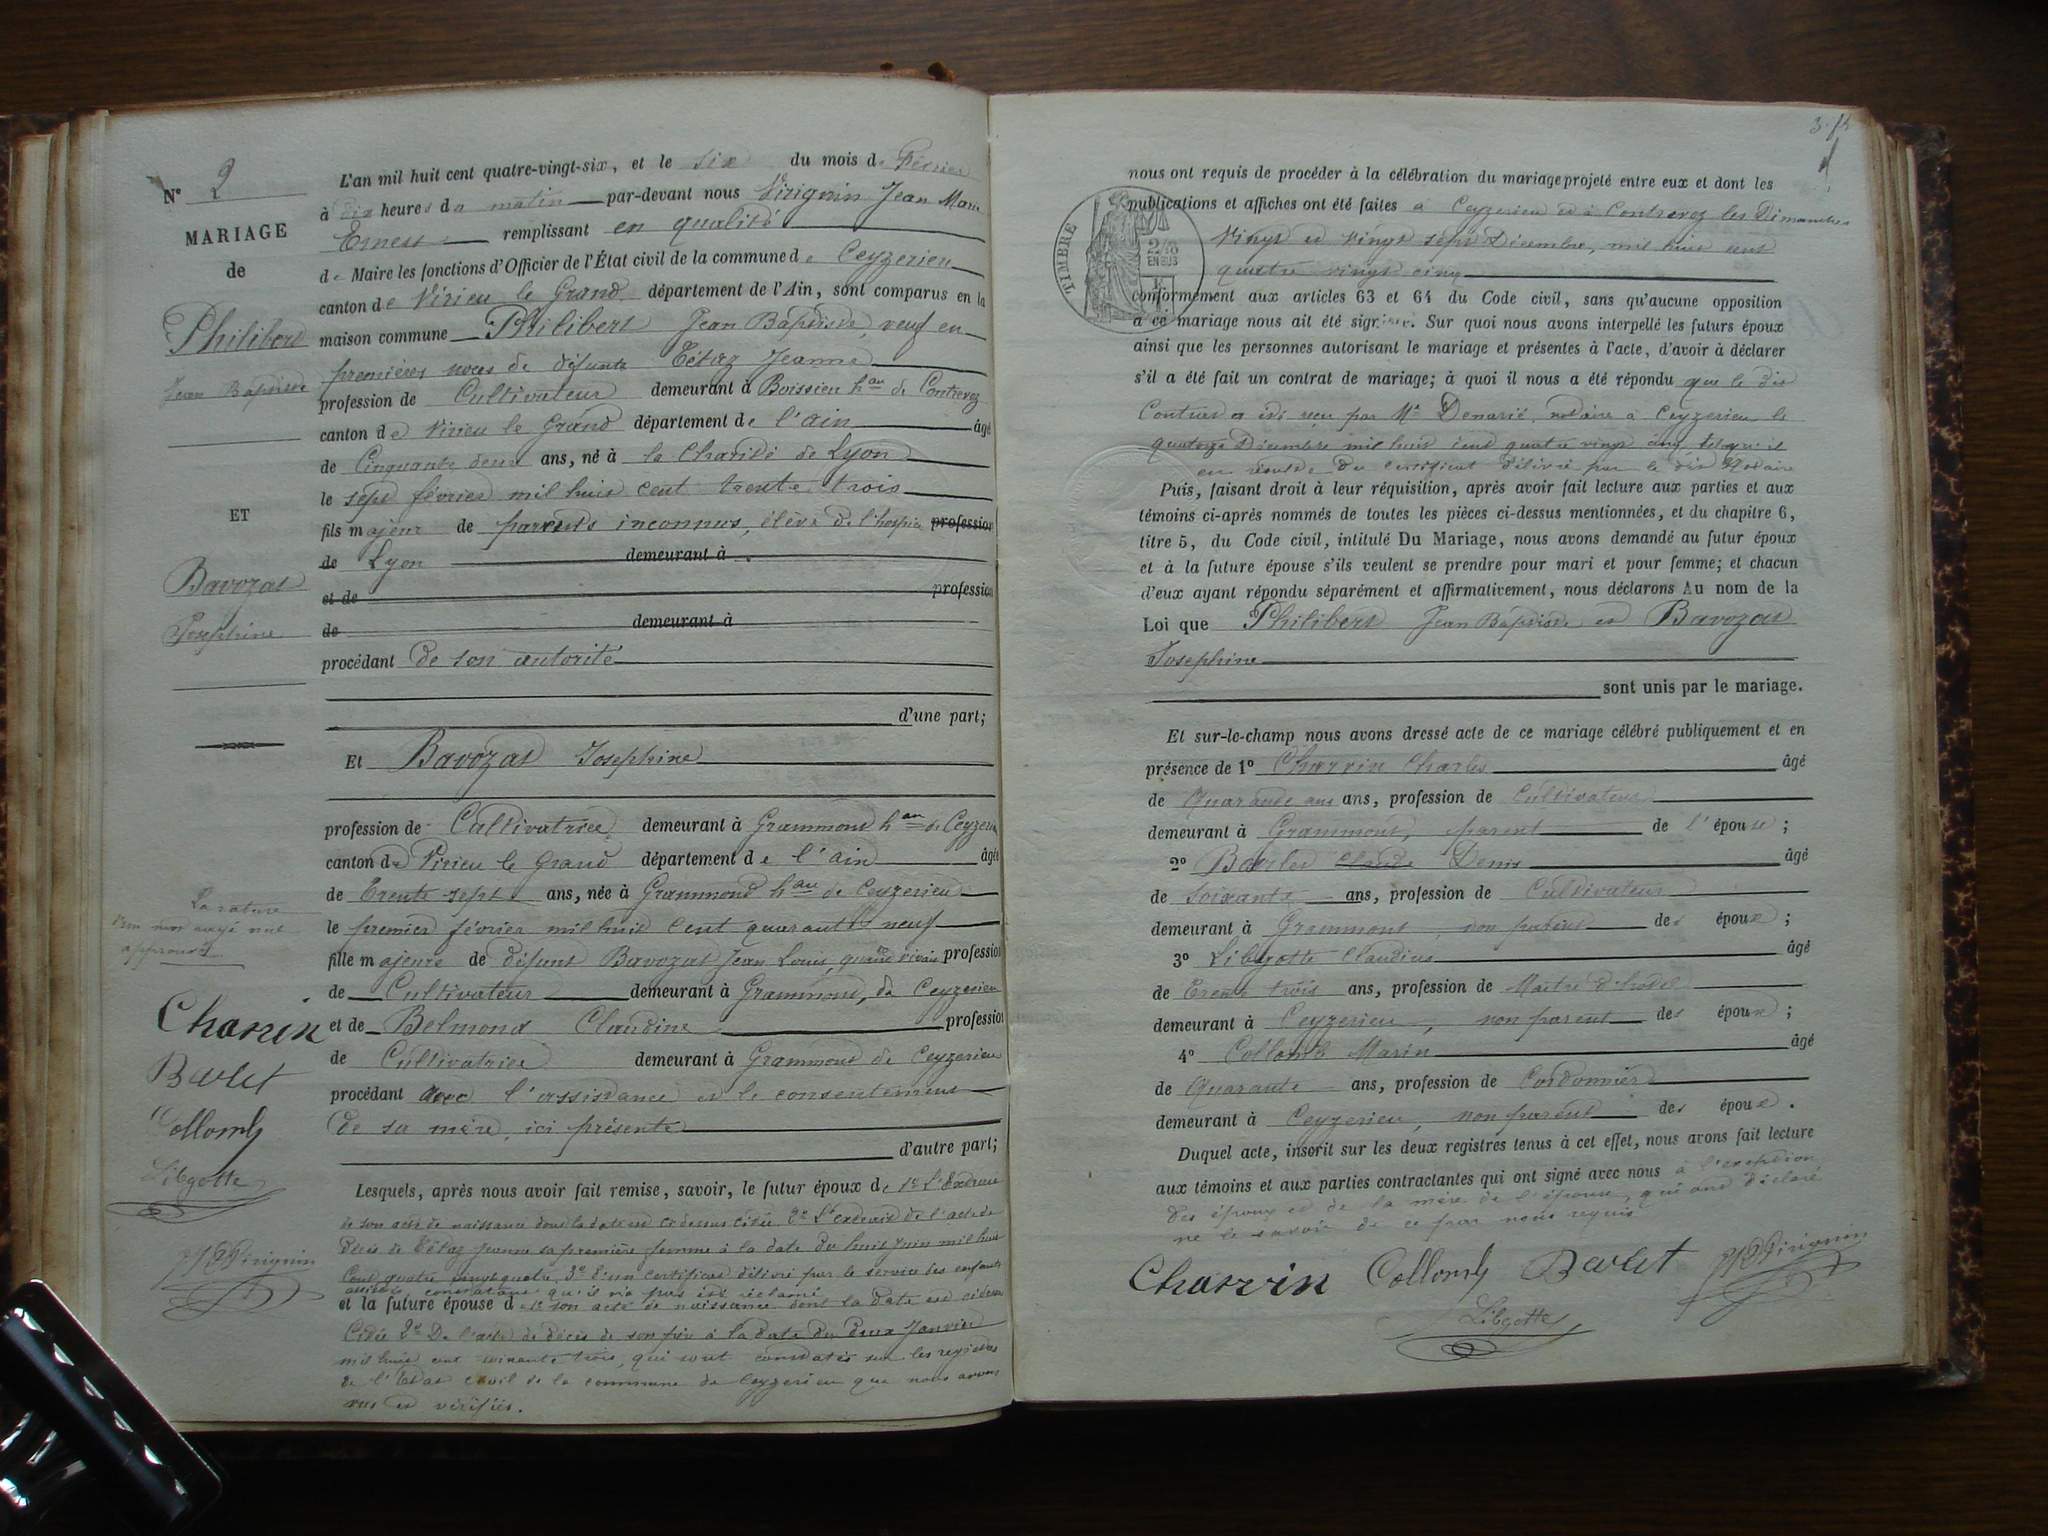 N° 2
MARIAGE
de
Philibert
Jean Baptiste
ET
Bavozat
Josephine
La rature
d'un mot rayé nul
approuvée
Charvin
Barlet
Collomb
Libgotte
JM Virignin
L'an mil huit cent quatre-vingt-six, et le six du mois de Février
à dix heures du matin par-devant nous Virignin Jean Marie
Ernest remplissant en qualité
de Maire les fonctions d'Officier de l'État civil de la commune de Ceyzerieu
canton de Virieu le Grand département de l'Ain, sont comparus en la
maison commune Philibert Jean Baptiste, veuf en
premières noces de défunte Tétaz Jeanne
profession de Cultivateur demeurant à Boissieu hau de Contrevoz
canton de Virieu le Grand département de l'ain âgé
de Cinquante deux ans, né à la Charité de Lyon
le sept février mil huit cent trente trois
fils majeur de parents inconnus, élève de l'hospice profession
de Lyon demeurant à
et de profession
de demeurant à
procédant de son autorité
d'une part;
Et Bavozat Josephine
profession de Cultivatrice demeurant à Grammont hau de Ceyzerieu
canton de Virieu le Grand département de l'ain âgée
de Trente-sept ans, née à Grammond hau de Ceyzerieu
le premier février mil huit cent quarante neuf
fille majeure de défunt Bavozat Jean Louis, quand vivait profession
de Cultivateur demeurant à Grammond, de Ceyzerieu
et de Belmond Claudine profession
de Cultivatrice demeurant à Grammont de Ceyzerieu
procédant avec l'assistance et le consentement
de sa mère, ici présente
d'autre part;
Lesquels, après nous avoir fait remise, savoir, le futur époux de 1° L'Extrait
de son acte de naissance dont la date est ci dessus citée 2° L'extrait de l'acte de
Décès de Tétaz Jeanne sa première femme à la date du huit Juin mil huit
Cent quatre vingt quatre, 3° d'un certificat délivré par le service des enfants
assistés, constatant qu'il n'a pas été réclamé
et la future épouse de 1° son acte de naissance dont la date est ci dessus
Citée 2° De l'acte de décès de son père à la date du deux Janvier
mil huit cent soixante trois, qui sont constatés sur les registres
de l'Etat civil de la commune de Ceyzerieu que nous avons
vus et vérifiés.
TIMBRE
nous ont requis de procéder à la célébration du mariage projeté entre eux et dont les
publications et affiches ont été faites à Ceyzerieu et à Contrevoz les Dimanches
Vingt et Vingt sept Décembre, mil huit cent
quatre vingt cinq
conformément aux articles 63 et 64 du Code civil, sans qu'aucune opposition
à ce mariage nous ait été signifiée. Sur quoi nous avons interpellé les futurs époux
ainsi que les personnes autorisant le mariage et présentes à l'acte, d'avoir à déclarer
s'il a été fait un contrat de mariage; à quoi il nous a été répondu que le dit
Contrat a été reçu par Me Denarié notaire à Ceyzerieu le
quatorze Décembre mil huit cent quatre vingt cinq tel qu'il
en résulte du certificat délivré par le dit Notaire
Puis, faisant droit à leur réquisition, après avoir fait lecture aux parties et aux
témoins ci-après nommés de toutes les pièces ci-dessus mentionnées, et du chapitre 6,
titre 5, du Code civil, intitulé Du Mariage, nous avons demandé au futur époux
et à la future épouse s'ils veulent se prendre pour mari et pour femme; et chacun
d'eux ayant répondu séparément et affirmativement, nous déclarons Au nom de la
Loi que Philibert Jean Baptiste et Bavozat
Josephine
sont unis par le mariage.
Et sur-le-champ nous avons dressé acte de ce mariage célébré publiquement et en
présence de 1° Charvin Charles âgé
de Quarante ans ans, profession de Cultivateur
demeurant à Grammont, parent de l'épouse;
2° Barlet Claude Denis âgé
de Soixante ans, profession de Cultivateur
demeurant à Grammont, non parent des époux;
3° Libgotte Claudius âgé
de Trente trois ans, profession de Maître d'hotel
demeurant à Ceyzerieu, non parent des époux;
4° Collomb Marin âgé
de Quarante ans, profession de Cordonnier
demeurant à Ceyzerieu, non parent des époux.
Duquel acte, inscrit sur les deux registres tenus à cet effet, nous avons fait lecture
aux témoins et aux parties contractantes qui ont signé avec nous à l'exception
des époux et de la mère de l'épouse, qui ont déclaré
ne le savoir de ce par nous requis
Charvin Collomb Barlet JM Virignin
Libgotte